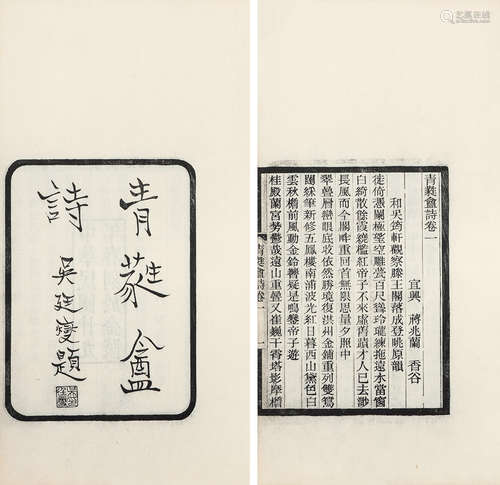 青蕤盦
詩
吳廷燮題
青蕤盦詩卷一
宜興 蔣兆蘭 香谷
和吳筠軒觀察滕王閣落成登眺原韻
徒倚憑闌極望空雕甍百尺聳玲瓏練拖遠水當窗
白綺散餘霞繞檻紅帝子不來虛舊蹟才人已去渺
長風而今閣畔重回首無限思量夕照中
翠疊層巒眼底收依然勝境復洪州金鋪重列雙鴛
綵筆新修五鳳樓南浦波光紅日暮西山黛色白
雲秋檐前風動金鈴響疑是鳴鑾帝子遊
桂殿蘭宮勢鬱哉遠山重疊又崔巍干霄塔影摩檐
青蕤盦詩卷一